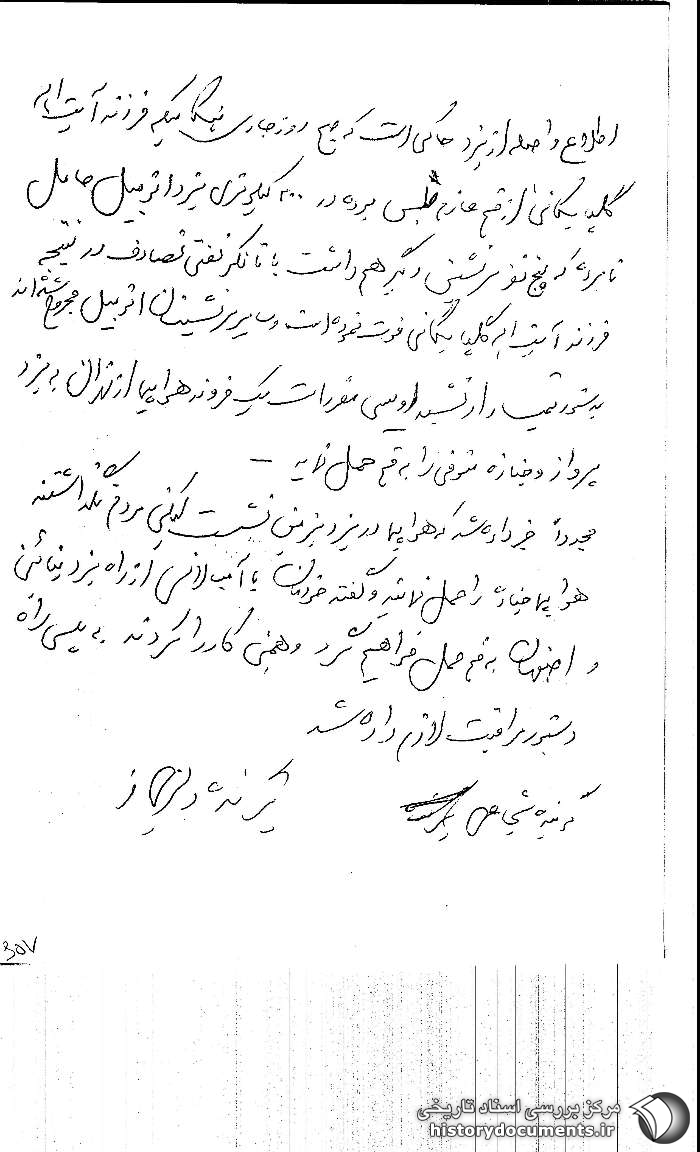 اطلاع واصله از یزد حاکی است که صبح روز جاری هنگامیکه فرزند آیت اله
گلپایگانی از قم عازم طبس بوده در ۲۰۰ کیلومتری یزد اتومبیل حامل
نامبرده که پنج نفر سرنشین دیگر هم داشت با تانکر نفتی تصادف در نتیجه
فرزند آیت اله گلپایگانی فوت نموده است و سایر سرنشینان اتومبیل مجروح شده‌اند
بدستور تیمسار ارتشبد اویسی مقرر است یک فروند هواپیما از تهران به یزد
پرواز و جنازه متوفی را به قم حمل نماید –
مجدداً خبر داده شد که هواپیما در یزد بزمین نشست لیکن مردم نگذاشتند
هواپیما جنازه را حمل نماید و گفتند خودمان با آمبولانس از راه یزد نائین
و اصفهان به قم حمل خواهیم کرد و همین کار را کردند به پلیس راه
دستور مراقبت لازم داده شد
گوینده شجاعی
گیرنده
307
مرکز بررسی اسناد تاریخی
historydocuments.ir